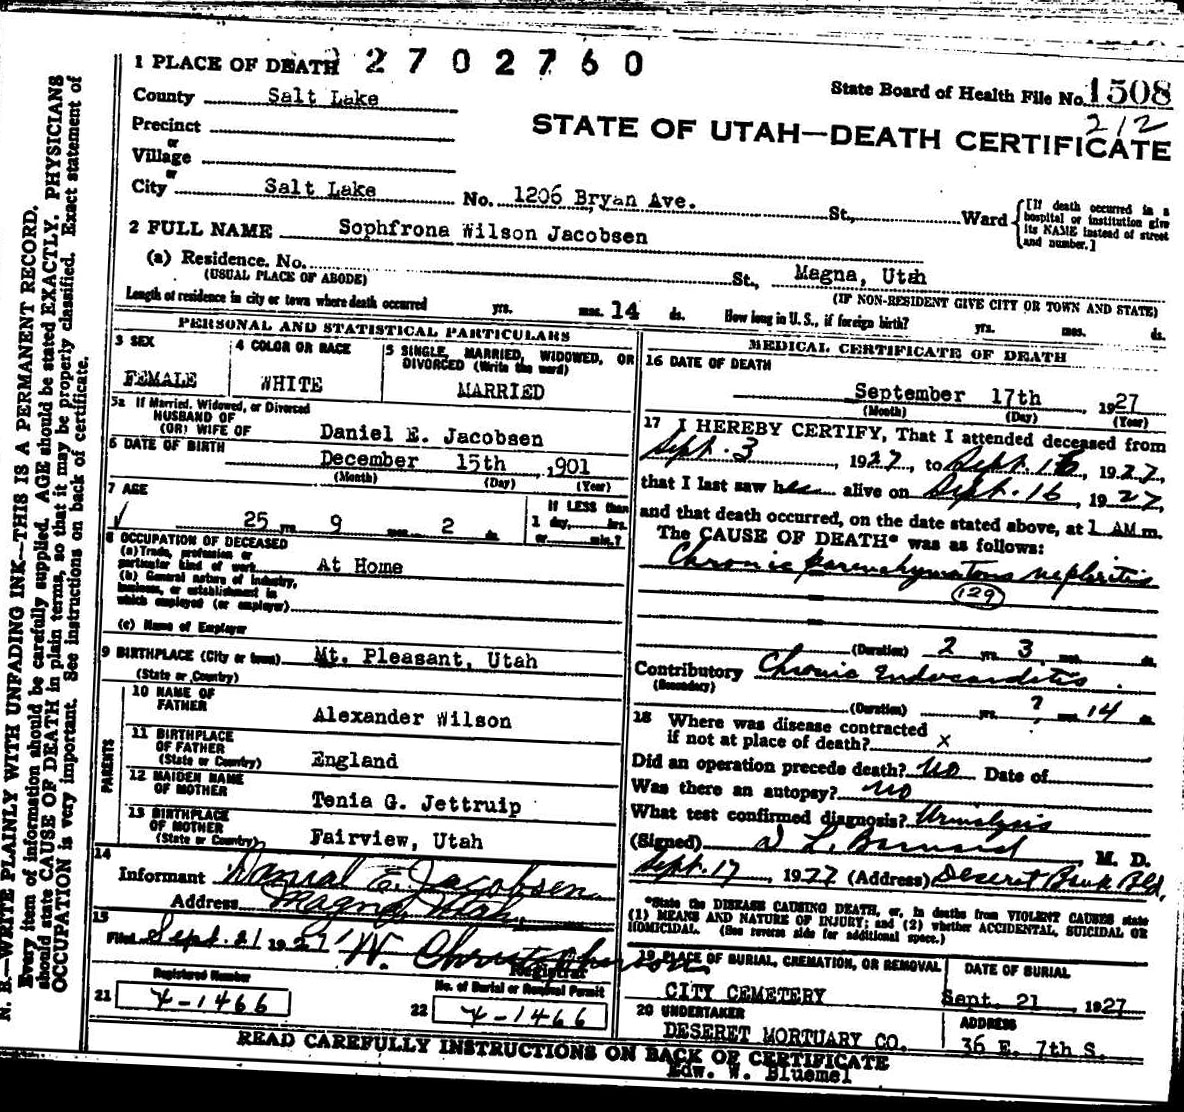 2702760
1 PLACE OF DEATH
State Board of Health File No. 1508
212
County Salt Lake
Precinct
or
STATE OF UTAH—DEATH CERTIFICATE
Village
or
City Salt Lake No. 1206 Bryan Ave. St., Ward
[If death occurred in a hospital or institution give its NAME instead of street and number.]
2 FULL NAME Sophfrona Wilson Jacobsen
(a) Residence. No. St., Magna, Utah
(USUAL PLACE OF ABODE) (IF NON-RESIDENT GIVE CITY OR TOWN AND STATE)
Length of residence in city or town where death occurred yrs. mos. 14 ds. How long in U.S., if foreign birth? yrs. mos. ds.
PERSONAL AND STATISTICAL PARTICULARS
3 SEX
FEMALE
4 COLOR OR RACE
WHITE
5 SINGLE, MARRIED, WIDOWED, OR
DIVORCED (Write the word)
MARRIED
5a If Married, Widowed, or Divorced
HUSBAND OF
(OR) WIFE OF Daniel E. Jacobsen
6 DATE OF BIRTH
December 15th ,901
(Month) (Day) (Year)
7 AGE
25 yrs. 9 mos. 2 ds.
If LESS than
1 day, hrs.
or min.?
8 OCCUPATION OF DECEASED
(a) Trade, profession or
particular kind of work At Home
(b) General nature of industry,
business, or establishment in
which employed (or employer)
(c) Name of Employer
9 BIRTHPLACE (City or town) Mt. Pleasant, Utah
(State or Country)
PARENTS
10 NAME OF
FATHER Alexander Wilson
11 BIRTHPLACE
OF FATHER
(State or Country) England
12 MAIDEN NAME
OF MOTHER Tenia G. Jettruip
13 BIRTHPLACE
OF MOTHER
(State or Country) Fairview, Utah
14
Informant Danial E. Jacobsen
Address Magna, Utah
15
Filed Sept. 21 1927 W. Christopherson
Registrar
Registered Number
21 4-1466
No. of Burial or Removal Permit
22 4-1466
MEDICAL CERTIFICATE OF DEATH
16 DATE OF DEATH
September 17th , 1927
(Month) (Day) (Year)
17 I HEREBY CERTIFY, That I attended deceased from
Sept. 3, 1927, to Sept. 16, 1927,
that I last saw her alive on Sept. 16, 1927,
and that death occurred, on the date stated above, at 1 AM m.
The CAUSE OF DEATH* was as follows:
Chronic parenchymatous nephritis
129
(Duration) 2 yrs. 3 mos. ds.
Contributory Chronic Endocarditis.
(Secondary)
(Duration) yrs. ? mos. 14 ds.
18 Where was disease contracted
if not at place of death? x
Did an operation precede death? no Date of
Was there an autopsy? no
What test confirmed diagnosis? Urinalysis
(Signed) M. D.
Sept. 17, 1927 (Address) Deseret Bank Bld,
*State the DISEASE CAUSING DEATH, or, in deaths from VIOLENT CAUSES state
(1) MEANS AND NATURE OF INJURY; and (2) whether ACCIDENTAL, SUICIDAL OR
HOMICIDAL. (See reverse side for additional space.)
19 PLACE OF BURIAL, CREMATION, OR REMOVAL
CITY CEMETERY
DATE OF BURIAL
Sept. 21 , 1927
20 UNDERTAKER
DESERET MORTUARY CO.
ADDRESS
36 E. 7th S.
READ CAREFULLY INSTRUCTIONS ON BACK OF CERTIFICATE
Edw. W. Bluemel
N. B.—WRITE PLAINLY WITH UNFADING INK—THIS IS A PERMANENT RECORD.
Every item of information should be carefully supplied. AGE should be stated EXACTLY. PHYSICIANS
should state CAUSE OF DEATH in plain terms, so that it may be properly classified. Exact statement of
OCCUPATION is very important. See instructions on back of certificate.